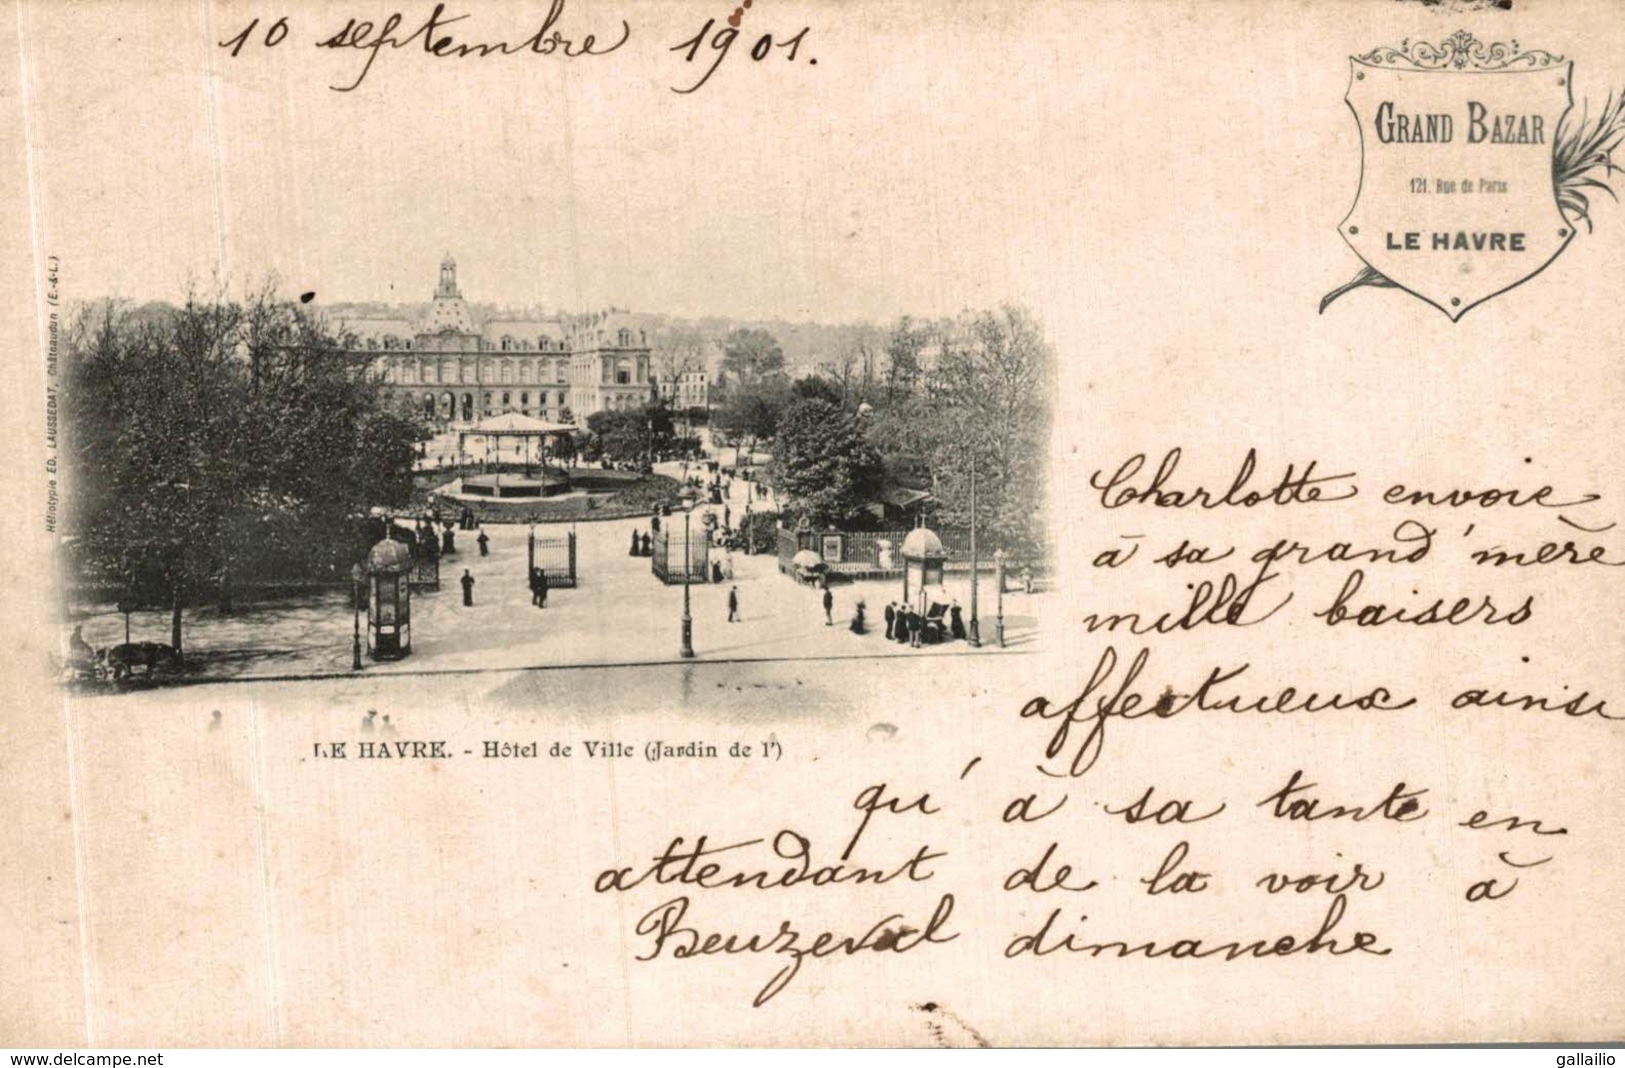 10 septembre 1901.
GRAND BAZAR
121, Rue de Paris
LE HAVRE
Héliotypie ED. LAUSSEDAT, Châteaudun (E.-&-L.)
LE HAVRE. - Hôtel de Ville (Jardin de l')
Charlotte envoie
à sa grand'mère
mille baisers
affectueux ainsi
qu'à sa tante en
attendant de la voir à
Beuzeval dimanche
www.delcampe.net
gallailio